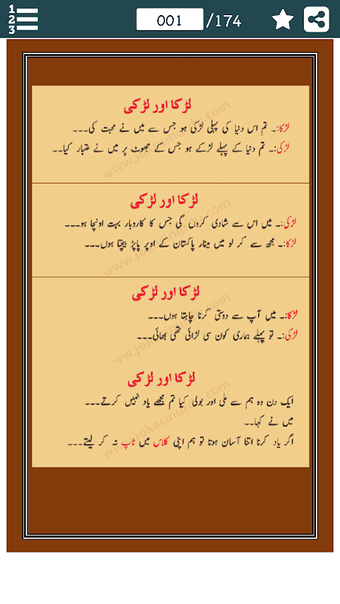 1
2
3
001 /174
لڑکا اور لڑکی
لڑکا:۔ تم اس دنیا کی پہلی لڑکی ہو جس سے میں نے محبت کی۔۔۔
لڑکی:۔ تم دنیا کے پہلے لڑکے ہو جس کے جھوٹ پر میں نے عتبار کیا۔۔
لڑکا اور لڑکی
لڑکی:۔ میں اس سے شادی کروں گی جس کا کاروبار بہت اونچا ہو۔۔۔
لڑکا:۔ مجھ سے کر لو میں مینار پاکستان کے اوپر پاپڑ بیچتا ہوں۔۔۔
لڑکا اور لڑکی
لڑکا:۔ میں آپ سے دوستی کرنا چاہتا ہوں۔۔۔
لڑکی:۔ تو پہلے ہماری کون سی لڑائی تھی بھائی۔۔۔
لڑکا اور لڑکی
ایک دن وہ ہم سے ملی اور بولی کیا تم مجھے یاد نہیں کرتے۔۔۔
میں نے کہا۔۔
اگر یاد کرنا اتنا آسان ہوتا تو ہم اپنی کلاس میں ٹاپ نہ کر لیتے۔۔۔